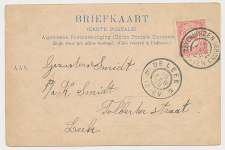 BRIEFKAART
(CARTE POSTALE)
Algemeene Postvereeniging (Union Postale Universelle)
Zijde voor het adres bestemd. (Côté réservé à l'adresse.)
AAN
Gezusters Smidt
p/a K. Smidt
Tolberterstraat
Leek
DE LEEK